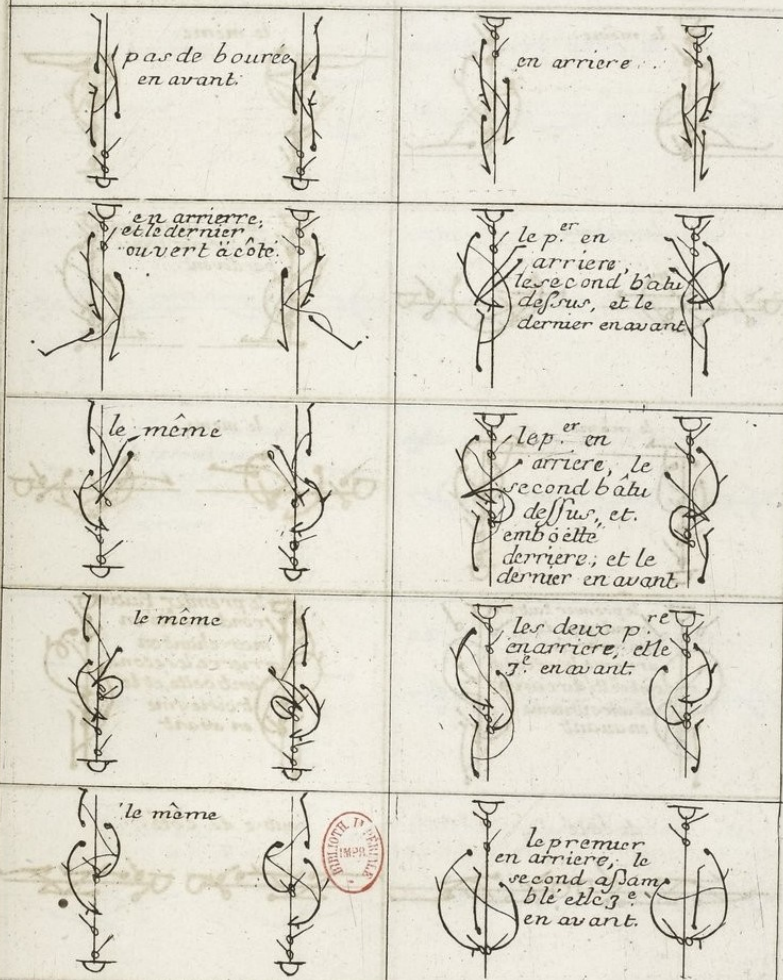 pas de bouree
en avant.
en arriere
en arrierre,
et le dernier
ouvert à côté.
le p.er en
arriere,
le second bâtu
dessus, et le
dernier en avant
le même
le p.er en
arriere, le
second bâtu
dessus, et
emboëtté
derriere; et le
dernier en avant
le même
les deux p.re
en arriere, et le
3.e en avant.
le même
le premier
en arriere, le
second assam
blé et le 3.e
en avant.
BIBLIOTH. IMPÉRIALE
IMPR.